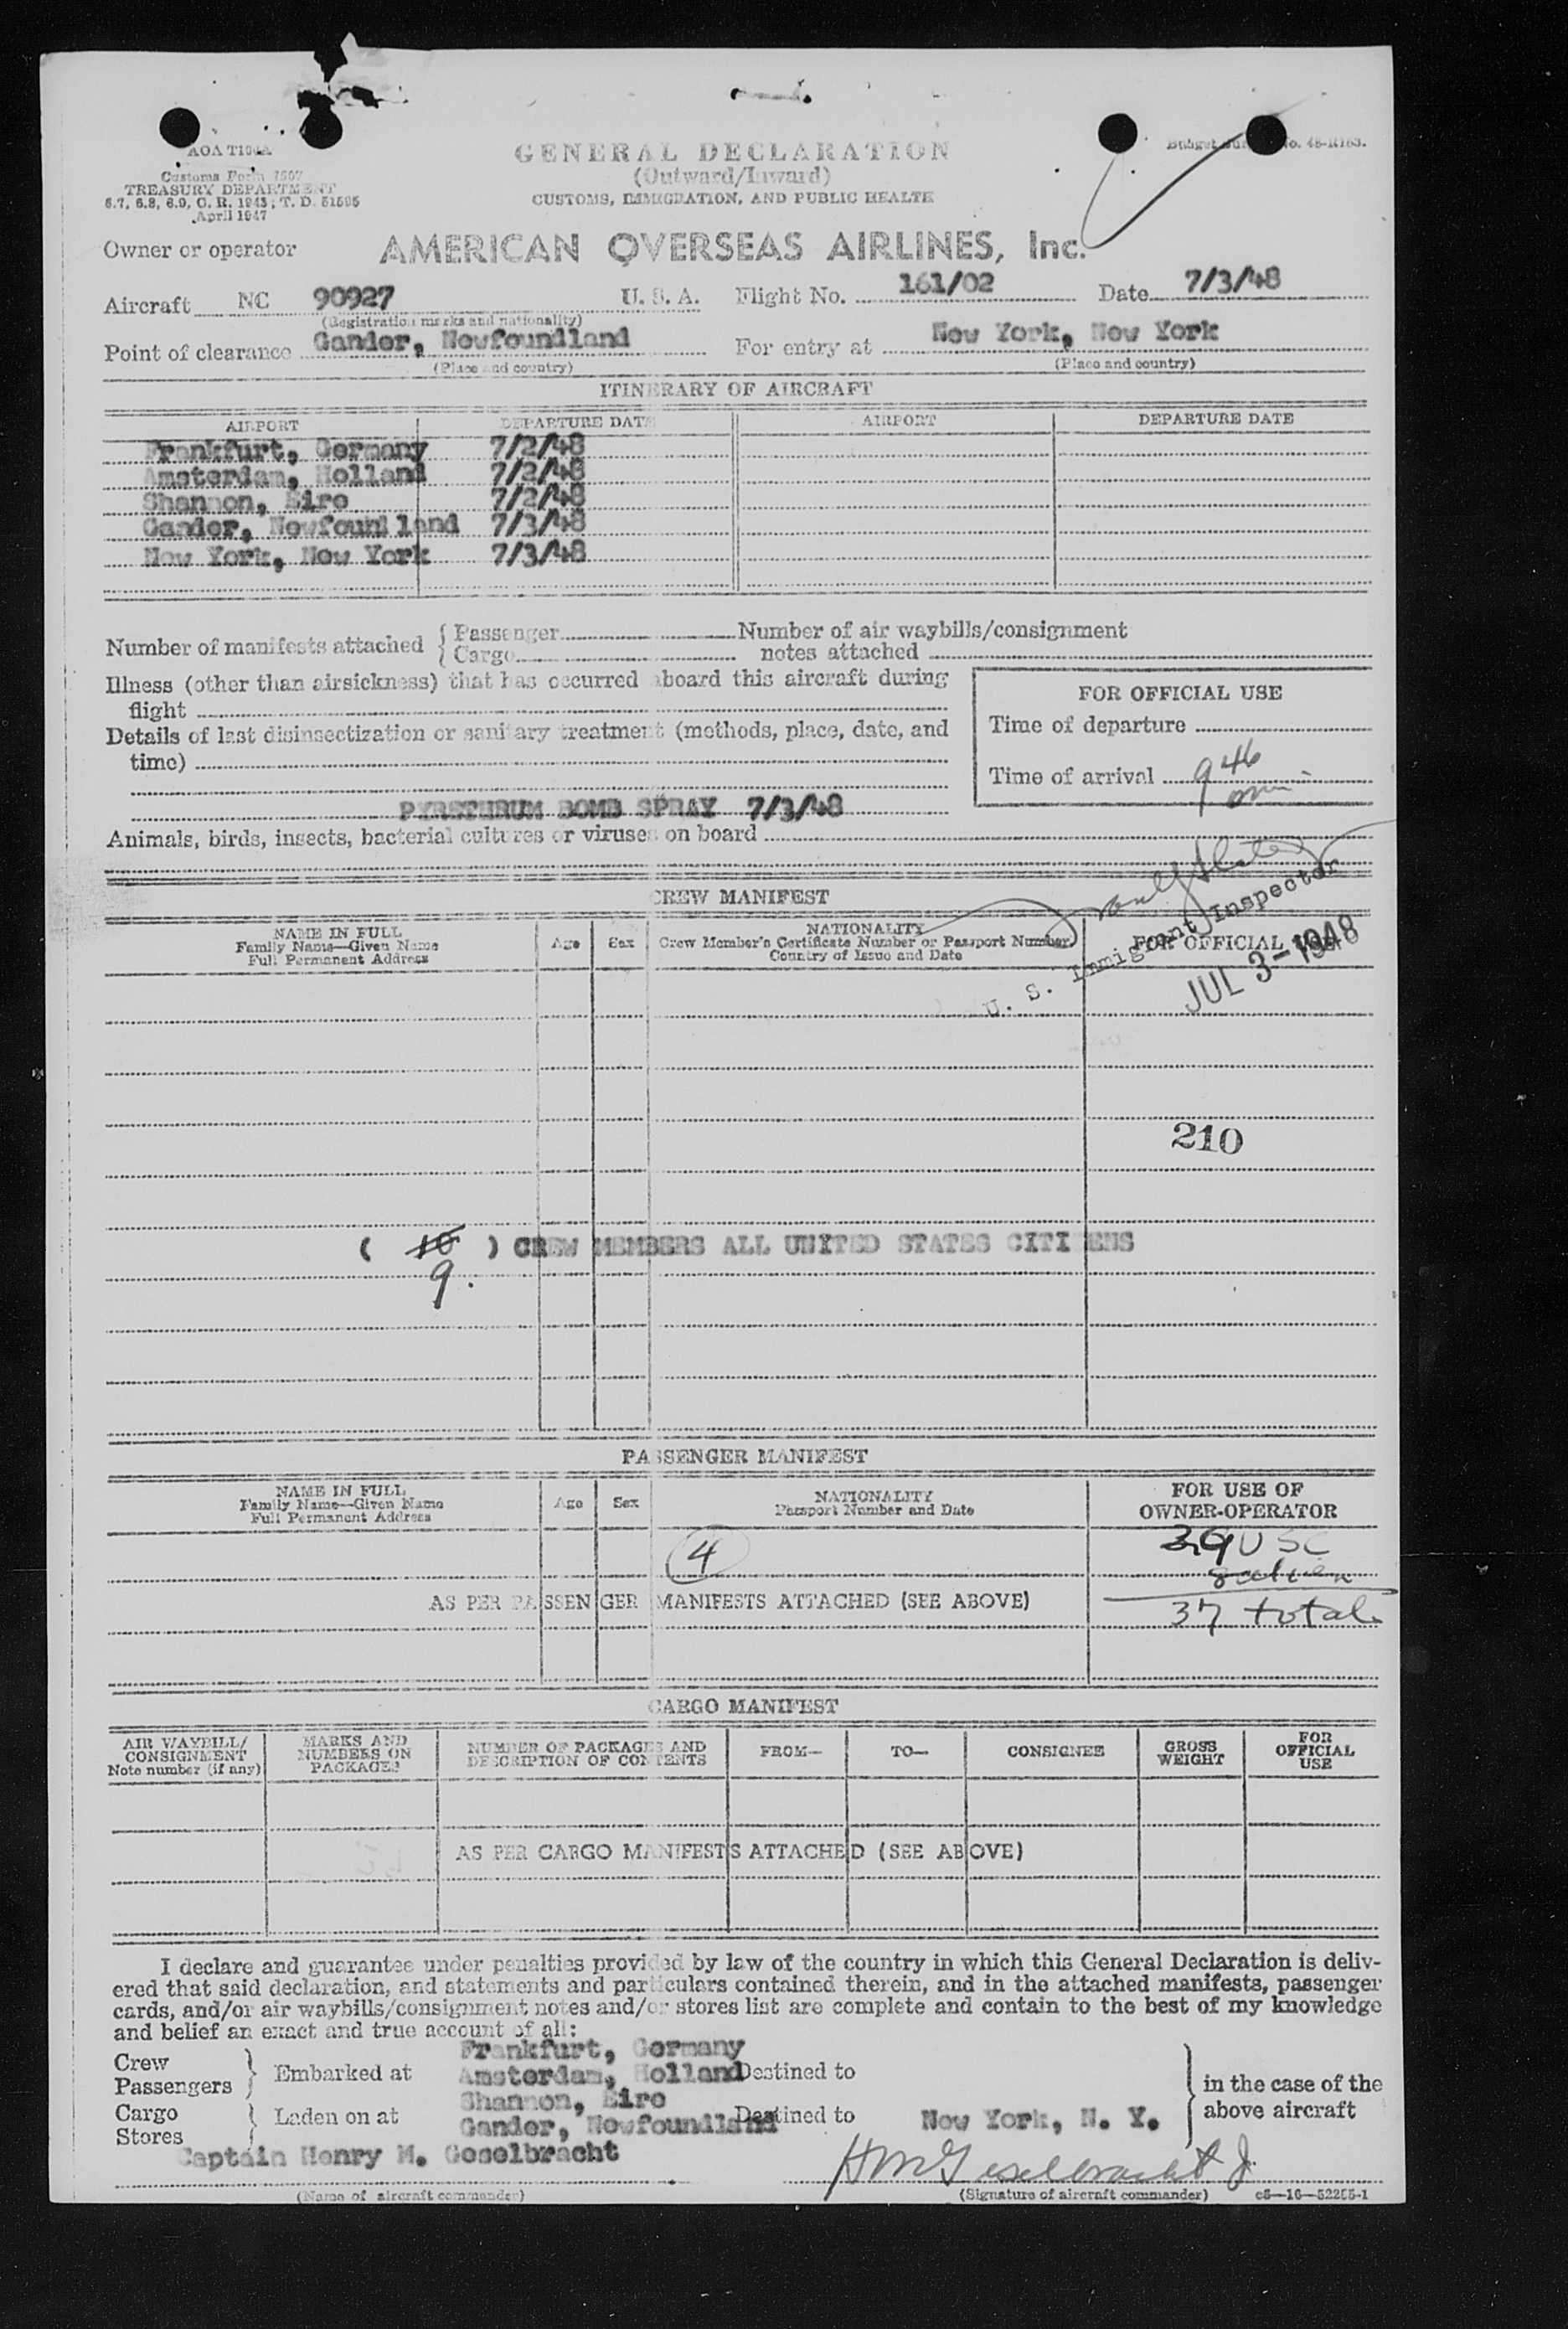 AOA T100A
Customs Form 7507
TREASURY DEPARTMENT
6.7, 6.8, 6.9, C. R. 1943; T. D. 51595
April 1947
GENERAL DECLARATION
(Outward/Inward)
CUSTOMS, IMMIGRATION, AND PUBLIC HEALTH
Budget No. 48-R183.
Owner or operator AMERICAN OVERSEAS AIRLINES, Inc.
Aircraft NC 90927 U. S. A. Flight No. 161/02 Date 7/3/48
(Registration marks and nationality)
Point of clearance Gander, Newfoundland For entry at New York, New York
(Place and country) (Place and country)
ITINERARY OF AIRCRAFT
AIRPORT DEPARTURE DATE AIRPORT DEPARTURE DATE
Frankfurt, Germany 7/2/48
Amsterdam, Holland 7/2/48
Shannon, Eire 7/2/48
Gander, Newfoundland 7/3/48
New York, New York 7/3/48
Number of manifests attached { Passenger Number of air waybills/consignment
{ Cargo notes attached
Illness (other than airsickness) that has occurred aboard this aircraft during
flight
Details of last disinsectization or sanitary treatment (methods, place, date, and
time)
FOR OFFICIAL USE
Time of departure
Time of arrival 9 46
PYRETHRUM BOMB SPRAY 7/3/48
Animals, birds, insects, bacterial cultures or viruses on board
CREW MANIFEST
NAME IN FULL
Family Name—Given Name
Full Permanent Address
Age Sex
NATIONALITY
Crew Member's Certificate Number or Passport Number
Country of Issue and Date
FOR OFFICIAL USE
U. S. Immigrant Inspector
JUL 3-1948
210
( 10 ) CREW MEMBERS ALL UNITED STATES CITIZENS
9.
PASSENGER MANIFEST
NAME IN FULL
Family Name—Given Name
Full Permanent Address
Age Sex
NATIONALITY
Passport Number and Date
FOR USE OF
OWNER-OPERATOR
4
29 USC
8 alien
AS PER PASSENGER MANIFESTS ATTACHED (SEE ABOVE)
37 total
CARGO MANIFEST
AIR WAYBILL/
CONSIGNMENT
Note number (if any)
MARKS AND
NUMBERS ON
PACKAGES
NUMBER OF PACKAGES AND
DESCRIPTION OF CONTENTS
FROM— TO— CONSIGNEE
GROSS
WEIGHT
FOR
OFFICIAL
USE
AS PER CARGO MANIFESTS ATTACHED (SEE ABOVE)
I declare and guarantee under penalties provided by law of the country in which this General Declaration is deliv-
ered that said declaration, and statements and particulars contained therein, and in the attached manifests, passenger
cards, and/or air waybills/consignment notes and/or stores list are complete and contain to the best of my knowledge
and belief an exact and true account of all:
Frankfurt, Germany
Crew
Passengers } Embarked at Amsterdam, Holland Destined to
Shannon, Eire
Cargo
Stores } Laden on at Gander, Newfoundland Destined to New York, N. Y.
} in the case of the
above aircraft
Captain Henry M. Geselbracht
HM Geselbracht Jr.
(Name of aircraft commander) (Signature of aircraft commander) c8—16—52255-1